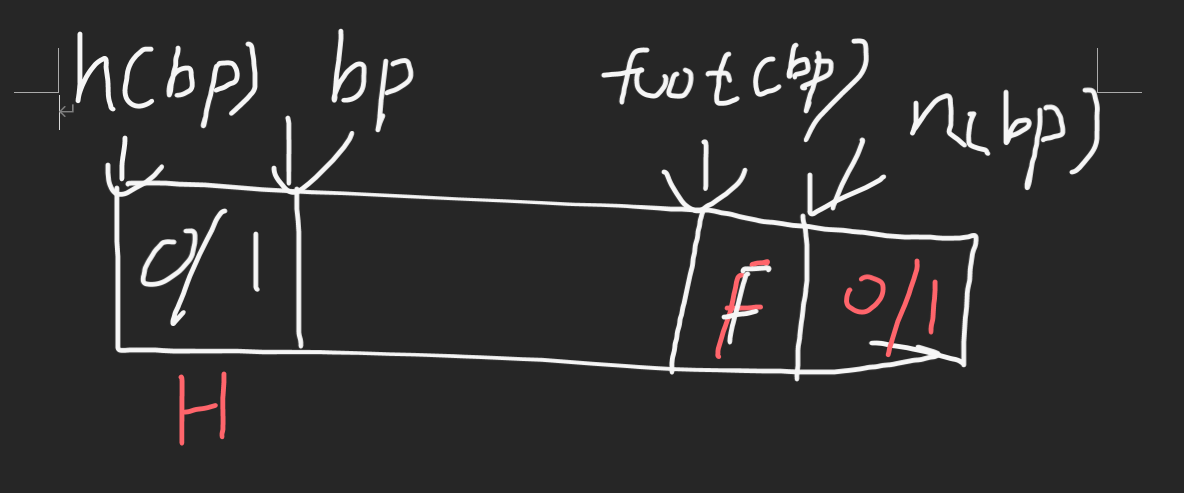 h(bp) bp foot(bp) n(bp)
0/1 F 0/1
H